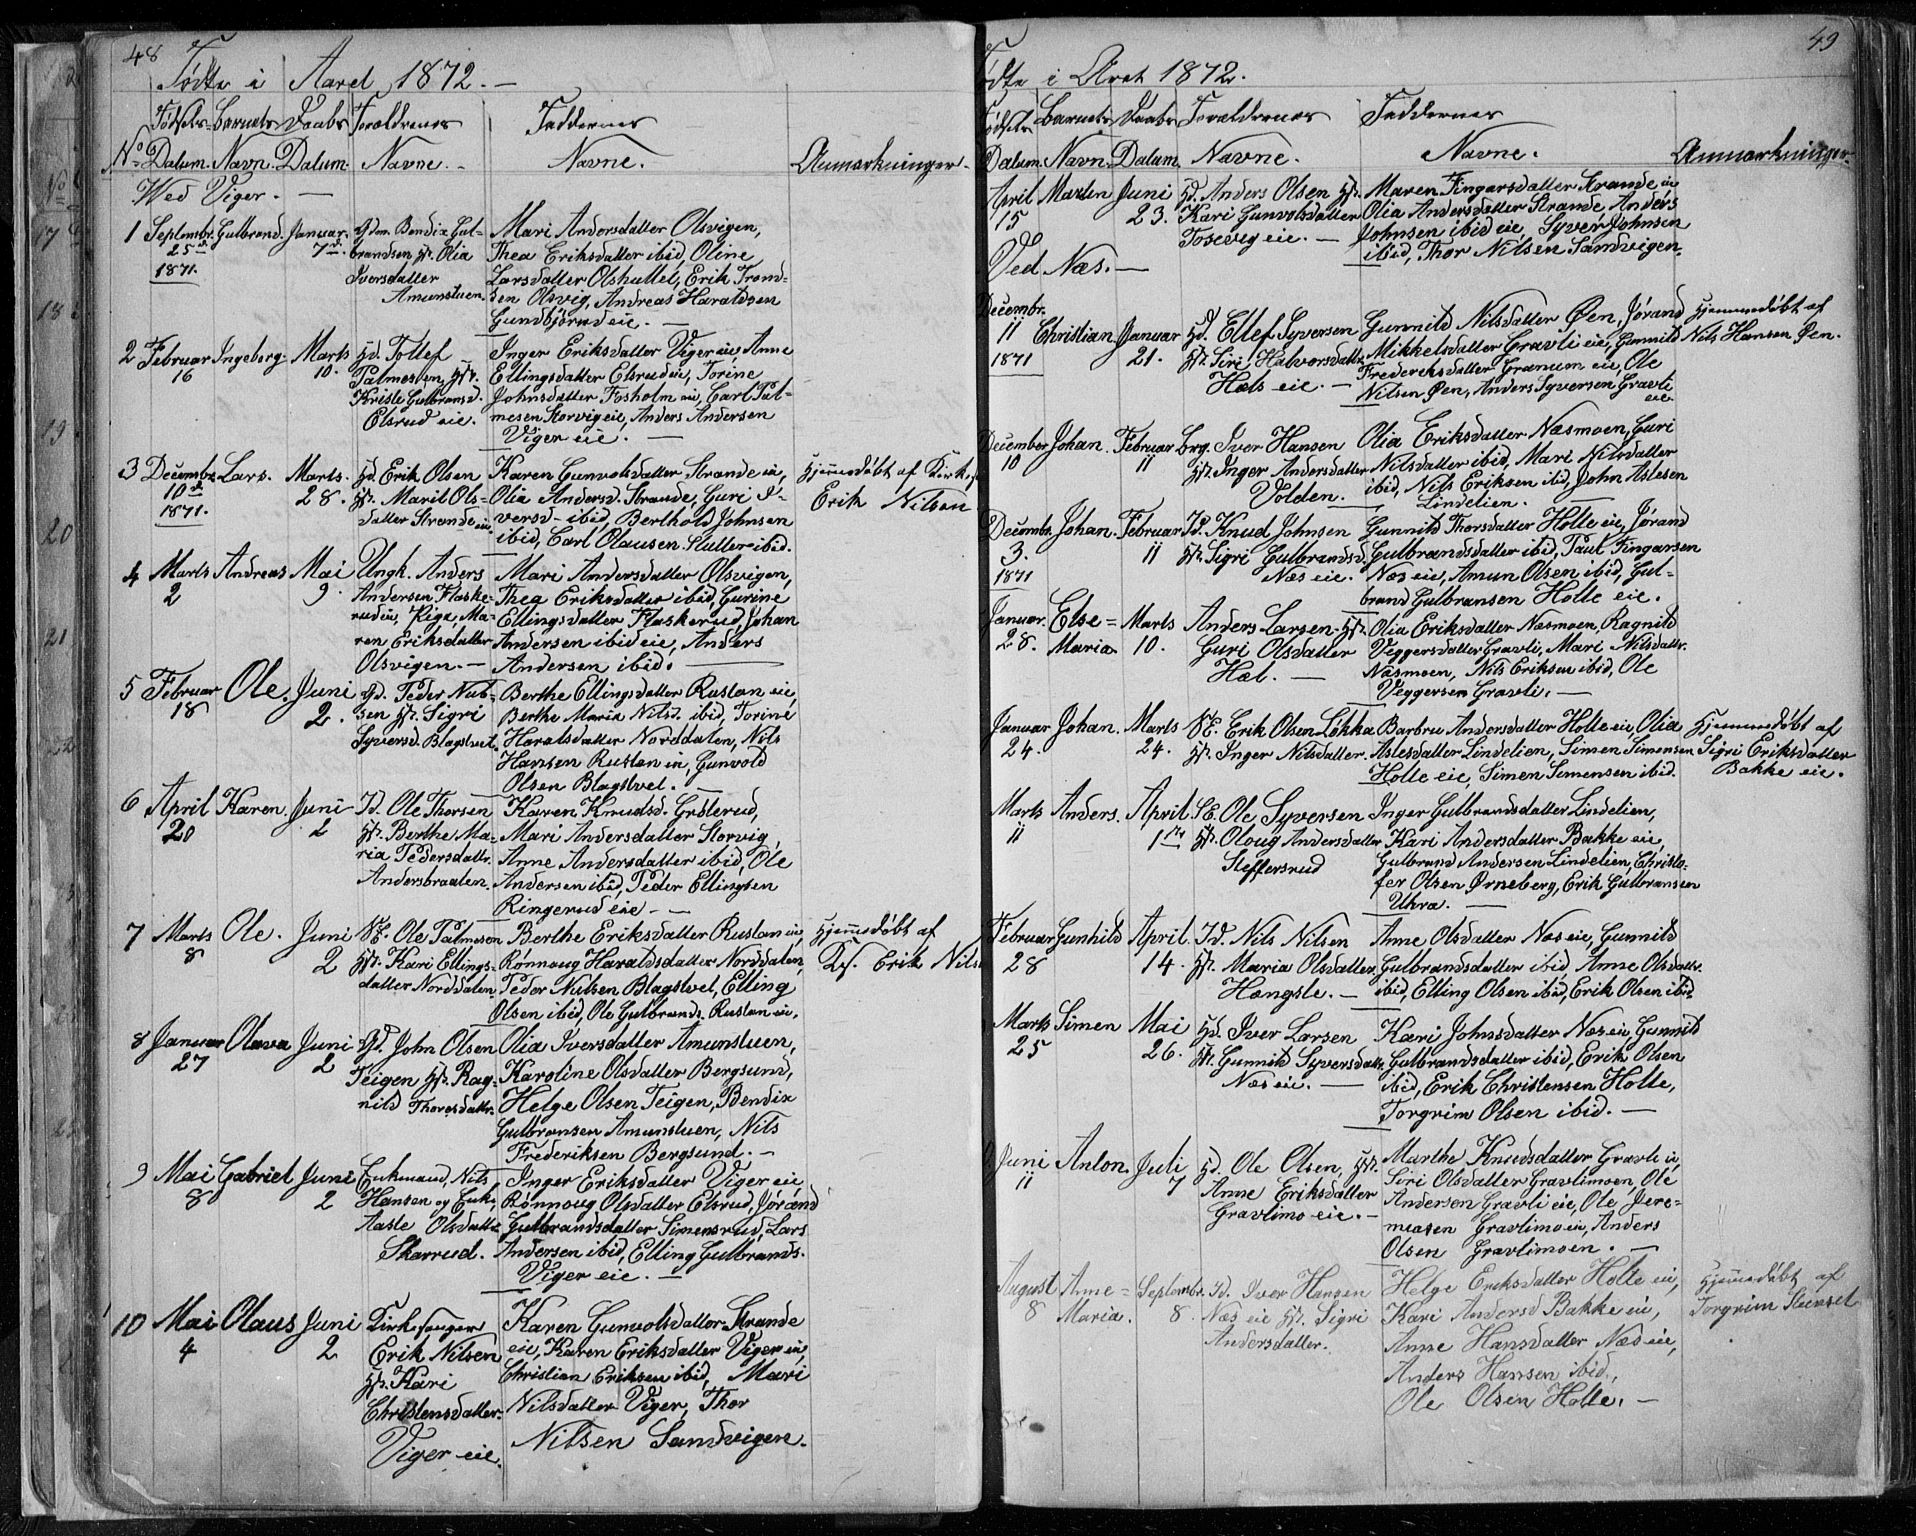 48
Fødte i Aaret 1872. —
Fødsels- Barnets Daabs Forældrenes Faddernes
No Datum. Navn. Datum. Navne. - Navne. Anmærkninger.
Wed Viger. —
1 Septembr. Gulbrand. Januar. Gdm. Bendix Gul- Mari Andersdatter Olsvigen,
25d 7de brandsen Hst. Olia Thea Eriksdatter ibid, Oline
1871. Iversdatter Larsdatter Olshullet, Erik Trond-
Amunstuen. sen Olsvig, Andreas Haraldsen
Gundbjörud eie. —
2 Februar Ingeborg. Marts Hd. Tollef Inger Eriksdatter Viger eie, Anne
16 10. Palmesen Hst. Ellingsdatter Elsrud eie, Torine
Kristi Gulbransd. Johnsdatter Fosholm eie, Carl Pal-
Elsrud eie. mesen Storvig eie, Anders Andersen
Viger eie. —
3 Decembr. Lars. Marts. Hd. Erik Olsen Karen Gunvolsdatter Strande eie, Hjemmedöbt af Kirk.
10de 28. Hst. Marit Ols- Olia Andersd. Strande, Guri I- Erik Nilsen
1871. datter Strande eie versd- ibid, Berthold Johnsen
ibid, Carl Olausen Slutter ibid.
4 Marts Andreas Mai Ungk. Anders Mari Andersdatter Olsvigen,
2 9. Andersen Flaske- Thea Eriksdatter ibid, Gurine
rud eie, Pige, Ma- Ellingsdatter Flaskerud, Johan
ren Eriksdatter Andersen ibid eie, Anders
Olsvigen. — Andersen ibid. —
5 Februar Ole. Juni Gd. Peder Nub- Berthe Ellingsdatter Rustan eie,
18 2. sen Hst. Sigri Berthe Maria Nilsd. ibid, Torine
Syversd. Blagstvet. Haraldsdatter Norddalen, Nils
Hansen Rustan eie, Gunvold
Olsen Blagstvet. —
6 April Karen. Juni Id. Ole Thorsen Karen Knudsd. Grøterud,
20 2 Hst. Berthe Ma- Mari Andersdatter Storvig,
ria Pedersdattr. Anne Andersdatter ibid, Ole
Andersbraaten. Andersen ibid, Peder Ellingsen
Ringerud eie - —
7 Marts Ole. Juni SE. Ole Palmesen Berthe Eriksdatter Rustan eie, Hjemedöbt af
8 2 Hst. Kari Ellings- Rønnoug Haraldsdatter Norddalen, Ks. Erik Nils
datter Norddalen. Peder Nubsen Blagstvet, Elling
Olsen ibid, Ole Gulbrands. Rustan eie.
8 Januar Olava Juni Gd. John Olsen Olia Iversdatter Amunstuen,
27 2 Teigen Hst. Rag- Karoline Olsdatter Bergsund,
nild Thoresdattr. Helge Olsen Teigen, Bendix
Gulbransen Amunstuen, Nils
Frederiksen Bergsund. —
9 Mai Gabriel Juni Enkemand, Nils Inger Eriksdatter Viger eie
8 2 Hansen og Enke, Rønnoug Olsdatter Elsrud, Jørand
Aasle Olsdattr. Gulbrandsdatter Simensrud, Lars
Skarrud. Andersen ibid, Elling Gulbrands.
Viger eie. —
10 Mai Olaus Juni Kirkesanger Karen Gunvolsdatter Strande
4 2 Erik Nilsen eie, Karen Eriksdatter Viger eie,
Hst. Kari Christian Eriksen ibid, Mari
Christensdatter. Nilsdatter Viger, Thor
Viger eie. Nilsen Sandvigen.
49
ødte i Aret 1872.
Fødsels Barnets Daabs Forældrenes Faddernes
Datum. Navn. Datum. Navne. Navne. Anmærkninger.
April Marten Juni Hd. Anders Olsen Hst. Maren Fingarsdatter Strande eie
15 23. Kari Gunvolsdatter Olia Andersdatter Strande, Anders
Tosevig eie. — Johnsen ibid eie, Syver Johnsen
ibid, Thor Nilsen Sandvigen.
Ved Næs. —
Decembr.
11 Christian. Januar Hd. Ellef Syversen Gunnild Nilsdatter Øen, Jørand Hjemmedøbt af
1871 21. Hst. Siri Halvorsdattr. Mikkelsdatter Gravli eie, Gunnild Nils Hansen Øen.
Hæls eie. — Frederiksdatter Grænum eie, Ole
Nilsen Øen, Anders Syversen Gravli
eie.
December Johan. Februar Brg. Iver Hansen Olia Eriksdatter Næsmoen, Guri
10 11 Hst. Inger Andersdatter Nilsdatter ibid, Mari Nilsdatter
Volden. — ibid, Nils Eriksen ibid, John Aslesen
Lindelien. —
Decembr. Johan. Februar Id. Knud Johnsen Gunnild Thorsdatter Holte eie, Jørand
3. 11 Hst. Sigri Gulbrandsd. Gulbrandsdatter ibid, Paul Fingarsen
1871 Næs eie. Næs eie, Amun Olsen ibid, Gul-
brand Gulbransen Holte eie.
Januar. Else = Marts Anders Larsen Hst. Olia Eriksdatter Næsmoen, Ragnild
28. Maria. 10. Guri Olsdatter Veggersdatter Gravli, Mari Nilsdattr.
Hæl. — Næsmoen, Nils Eriksen ibid, Ole
Veggersen Gravli. —
Januar Johan. Marts SE. Erik Olsen Løkka Barbru Andersdatter Holte eie, Olia Hjemmedøbt af
24. 24. Hst. Inger Nilsdatter. Aslesdatter Lindelien, Simen Simensen Sigri Eriksdatter
Holte eie, Simen Simensen ibid. Bakke eie.
Marts Anders. April SE. Ole Syversen Inger Gulbrandsdatter Lindelien,
11 1ste Hst. Oloug Andersdatter Kari Andersdatter Bakke eie,
Steffensrud Gulbrand Andersen Lindelien, Christo-
fer Olsen Ørneberg, Erik Gulbransen
Uhra. —
Februar Gunhild April. Id. Nils Nilsen Anne Olsdatter Næs eie, Gunnild
28 14. Hst. Maria Olsdatter, Gulbrandsdatter ibid, Anne Olsdattr.
Hængsle. — ibid, Elling Olsen ibid, Erik Olsen ibid.
Marts Simen Mai Hd. Iver Larsen Kari Johnsdatter Næs eie, Gunnild
25 26. Hst. Gunnild Syversdattr. Gulbrandsdatter ibid, Erik Olsen
Næs eie. — ibid, Erik Christensen Holte,
Torgrim Olsen ibid. —
Juni Anton. Juli Hd. Ole Olsen, Hst. Marthe Knudsdatter Gravli eie,
11 7 Anne Eriksdatter Siri Olsdatter Gravlimoen, Ole
Gravlimo eie. — Andersen Gravli eie, Ole Jere-
miasen Gravlimo eie, Anders
Olsen Gravlimoen. —
August Anne = Septembr. Id. Iver Hansen Helge Eriksdatter Holte eie, Hjemmedøbt af
8 Maria. 8. Næs eie Hst. Sigri Kari Andersd Bakke eie, Torgrim
Andersdatter. Anne Hansdatter Næs eie,
Anders Hansen ibid,
Ole Olsen Holte. —